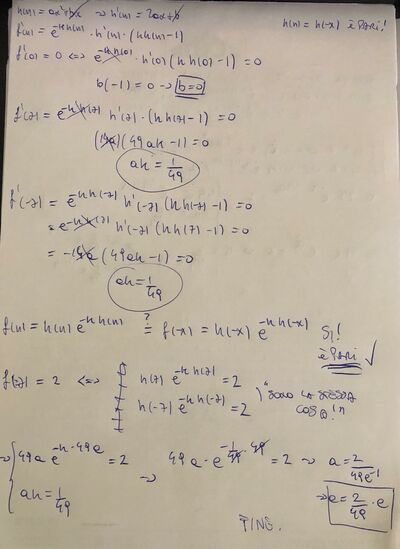 h(x) = ax²+bx ⇝ h'(x) = 2ax+b
h(x) = h(-x) è PARI!
f'(x) = e^{-k h(x)} · h'(x) · (k h(x) - 1)
f'(0) = 0 ⟺ e^{-k h(0)} · h'(0) (k h(0) - 1) = 0
b(-1) = 0 ⇝ b=0
f'(7) = e^{-k h(7)} h'(7) · (k h(7) - 1) = 0
(14a)(49ak - 1) = 0
ak = 1/49
f'(-7) = e^{-k h(-7)} h'(-7) (k h(-7) - 1) = 0
= e^{-k h(7)} h'(-7) (k h(7) - 1) = 0
= -14a (49ak - 1) = 0
ak = 1/49
f(x) = h(x) e^{-k h(x)} =? f(-x) = h(-x) e^{-k h(-x)} SI!
è PARI ✓
f(7) = 2 ⟺ h(7) e^{-k h(7)} = 2
h(-7) e^{-k h(-7)} = 2
"SONO LA STESSA
COSA!"
⇝ 49a e^{-k·49a} = 2 ⇝ 49a · e^{-1/49 · 49} = 2 ⇝ a = 2/49e^{-1}
ak = 1/49
⇝ a = 2/49 · e
FINE.